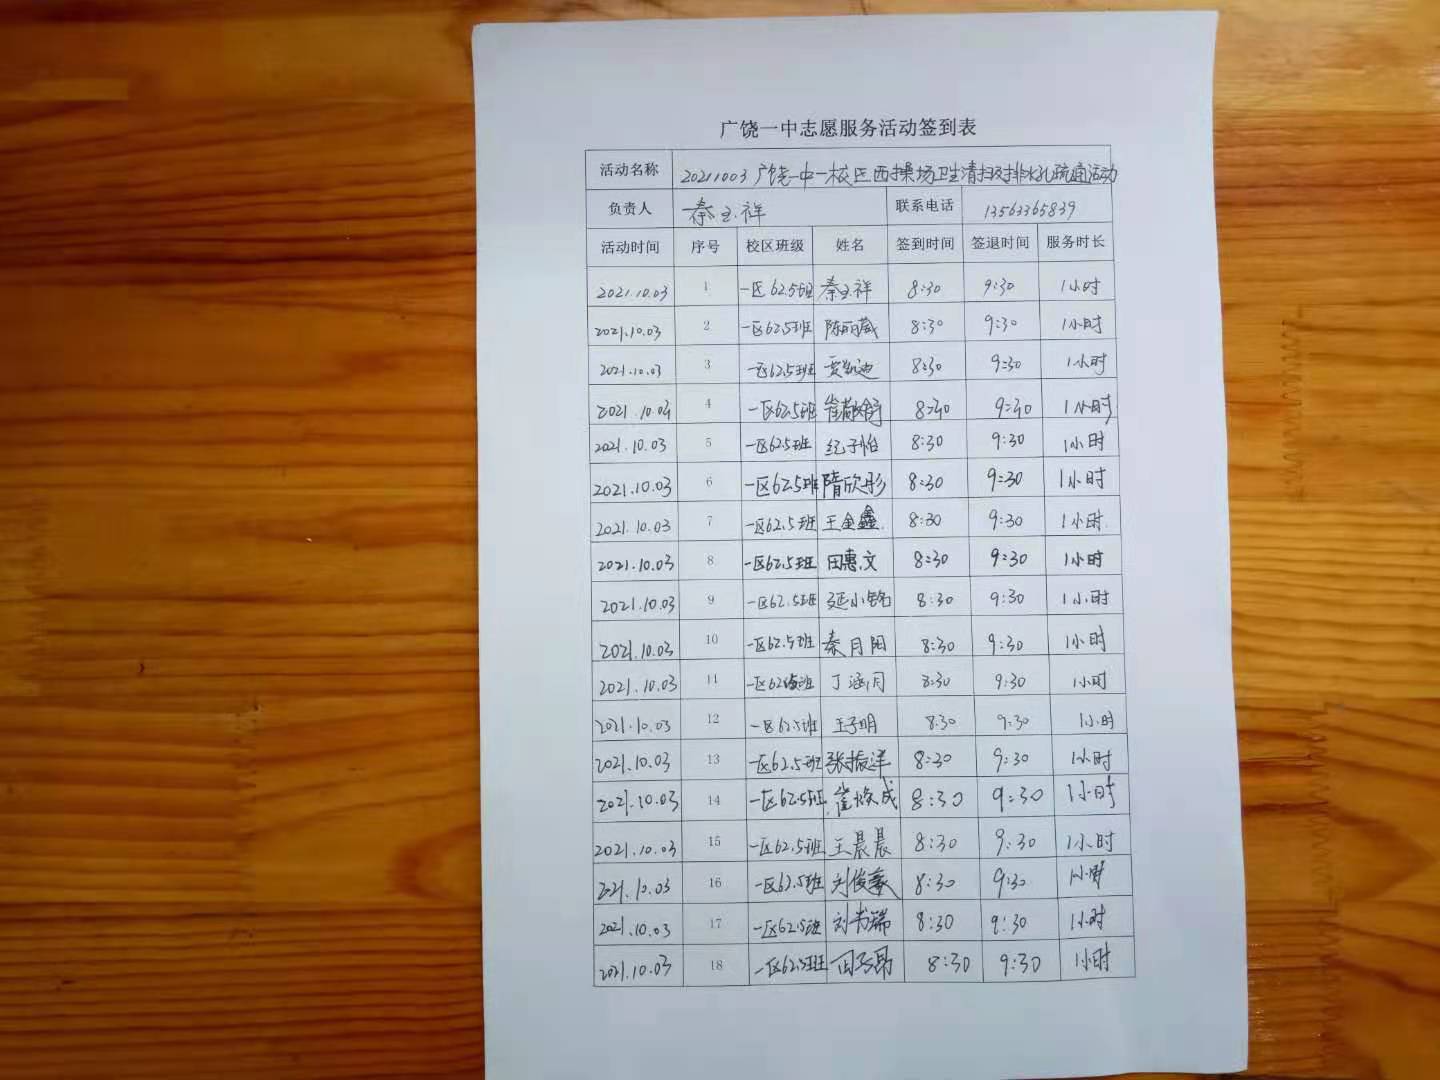 广饶一中志愿服务活动签到表
活动名称 20211003广饶一中一校区西操场卫生清扫及排水孔疏通活动
负责人 秦玉祥 联系电话 13563365839
活动时间 序号 校区班级 姓名 签到时间 签退时间 服务时长
2021.10.03 1 一区62.5班 秦玉祥 8:30 9:30 1小时
2021.10.03 2 一区62.5班 陈雨薇 8:30 9:30 1小时
2021.10.03 3 一区62.5班 贾凯迪 8:30 9:30 1小时
2021.10.03 4 一区62.5班 8:30 9:30 1小时
2021.10.03 5 一区62.5班 纪子怡 8:30 9:30 1小时
2021.10.03 6 一区62.5班 隋欣彤 8:30 9:30 1小时
2021.10.03 7 一区62.5班 王金鑫 8:30 9:30 1小时
2021.10.03 8 一区62.5班 田惠文 8:30 9:30 1小时
2021.10.03 9 一区62.5班 延小铭 8:30 9:30 1小时
2021.10.03 10 一区62.5班 秦月阳 8:30 9:30 1小时
2021.10.03 11 一区62.5班 丁涵月 8:30 9:30 1小时
2021.10.03 12 一区62.5班 王子明 8:30 9:30 1小时
2021.10.03 13 一区62.5班 张振洋 8:30 9:30 1小时
2021.10.03 14 一区62.5班 崔焕成 8:30 9:30 1小时
2021.10.03 15 一区62.5班 王晨晨 8:30 9:30 1小时
2021.10.03 16 一区62.5班 8:30 9:30 1小时
2021.10.03 17 一区62.5班 刘书瑞 8:30 9:30 1小时
2021.10.03 18 一区62.5班 田子昂 8:30 9:30 1小时